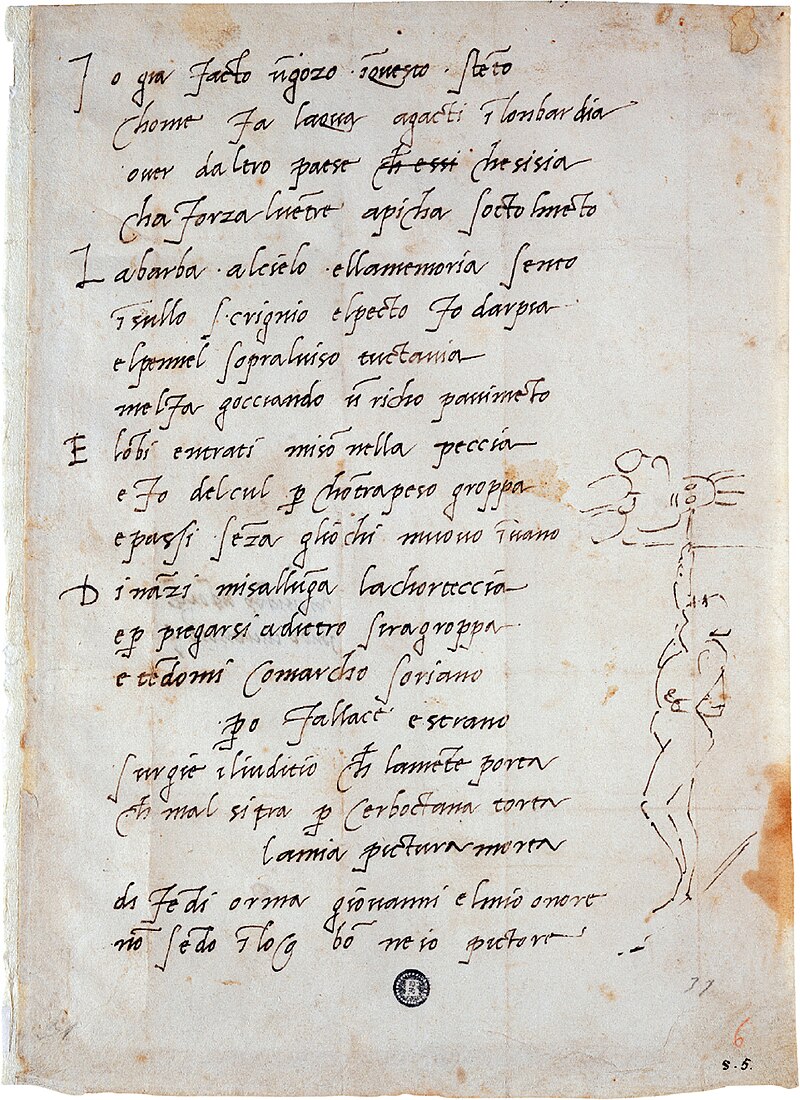 I o gia facto ūgozo īquesto stēto
chome fa laqua agacti ī lonbardia
over daltro paese ch̄ essi chesisia
cha forza lvētre apicha socto lmēto
L abarba alcielo ellamemoria sento
īsullo scrignio elpecto fo darpia
elpennel sopralviso tuctavia
melfa gocciando ū richo pavimēto
E lōbi entrati misō nella peccia
e fo delcul p̱ chōtrapeso groppa
epassi sēza gliochi muovo īvano
D ināzi misallūga lachorteccia
ep̱ piegarsi adietro siragroppa
e tēdomi Comarcho soriano
p̱o fallace e strano
surgie iliuditio ch̄ lamēte porta
ch̄ mal si tra p̱ cerboctana torta
lamia pictura morta
di fēdi orma giovanni elmio onore
nō sēdo ī loq bō ne io pictore
37
6
s.5.